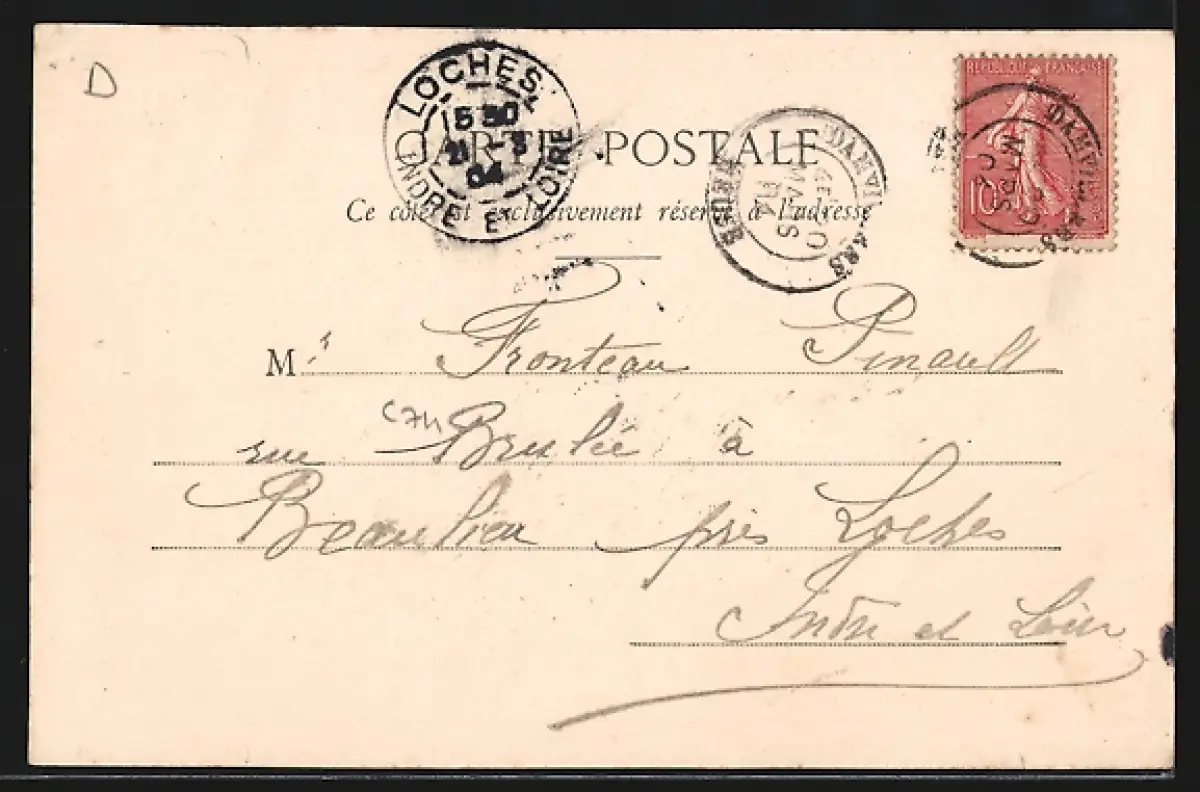 D
LOCHES
15 50
21 - 3
04
INDRE ET LOIRE
CARTE POSTALE
Ce côté est exclusivement réservé à l'adresse
DAMVI ERS
MARS
04
MEUSE
REPUBLIQUE FRANÇAISE
10
DAMVI ERS
MARS
04
Mr Fronteau Pinault
rue Brulée à
Beaulieu près Loches
Indre et Loire